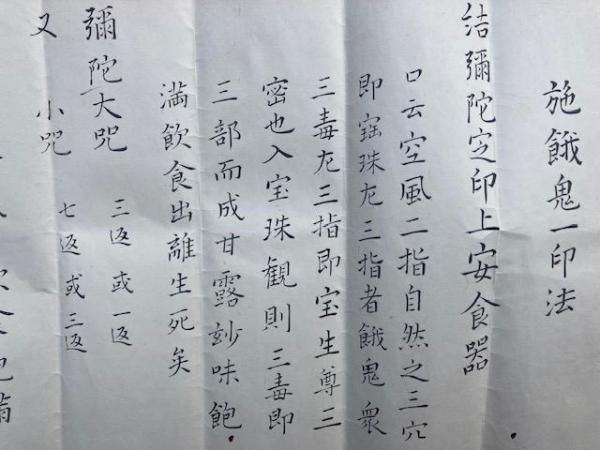 施餓鬼一印法
結彌陀定印上安食器
口云空風二指自然之三穴
即寶珠左三指者餓鬼衆
三毒左三指即宝生尊三
密也入宝珠観則三毒即
三部而成甘露玅味飽
満飲食出離生死矣
彌陀大咒 三返或一返
又 小咒 七返或三返